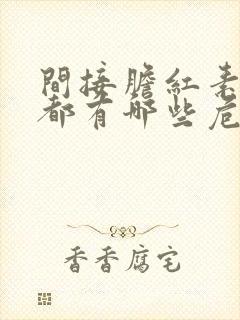 間接膽紅素
都有哪些危
香香腐宅